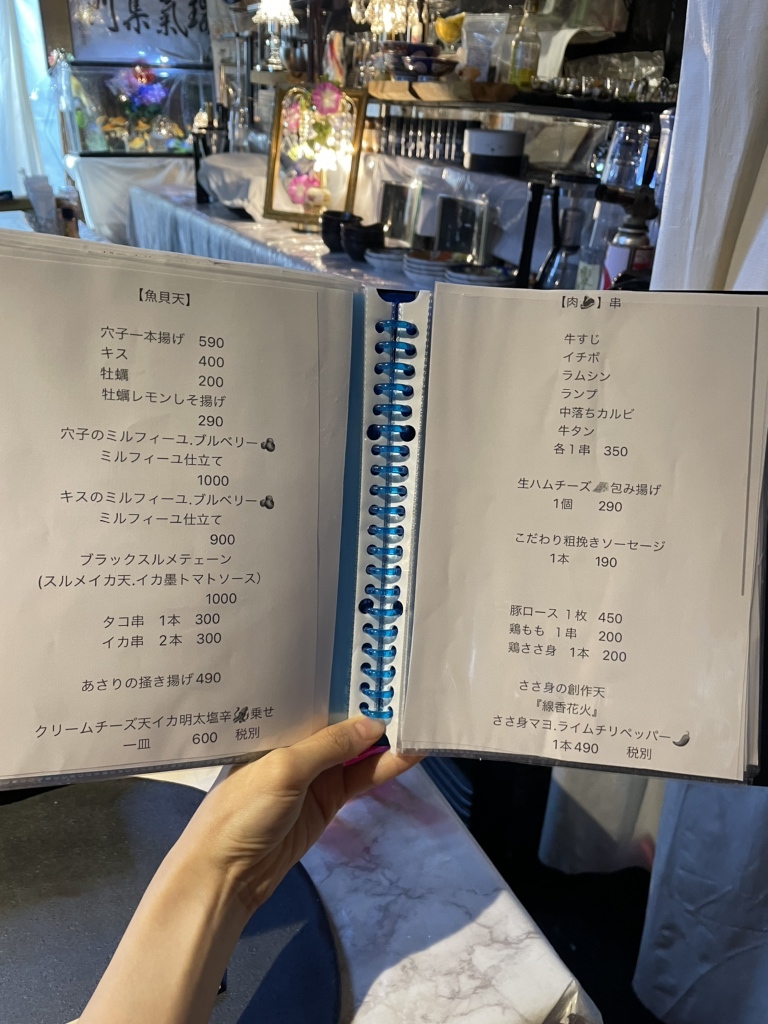 【魚貝天】
穴子一本揚げ 590
キス 400
牡蠣 200
牡蠣レモンしそ揚げ
290
穴子のミルフィーユ.ブルベリー🫐
ミルフィーユ仕立て
1000
キスのミルフィーユ.ブルベリー🫐
ミルフィーユ仕立て
900
ブラックスルメテェーン
(スルメイカ天.イカ墨トマトソース)
1000
タコ串 1本 300
イカ串 2本 300
あさりの掻き揚げ490
クリームチーズ天イカ明太塩辛🦑乗せ
一皿 600 税別
【肉🥩】串
牛すじ
イチボ
ラムシン
ランプ
中落ちカルビ
牛タン
各1串 350
生ハムチーズ🧀包み揚げ
1個 290
こだわり粗挽きソーセージ
1本 190
豚ロース 1枚 450
鶏もも 1串 200
鶏ささ身 1本 200
ささ身の創作天
『線香花火』
ささ身マヨ.ライムチリペッパー🌶
1本490 税別